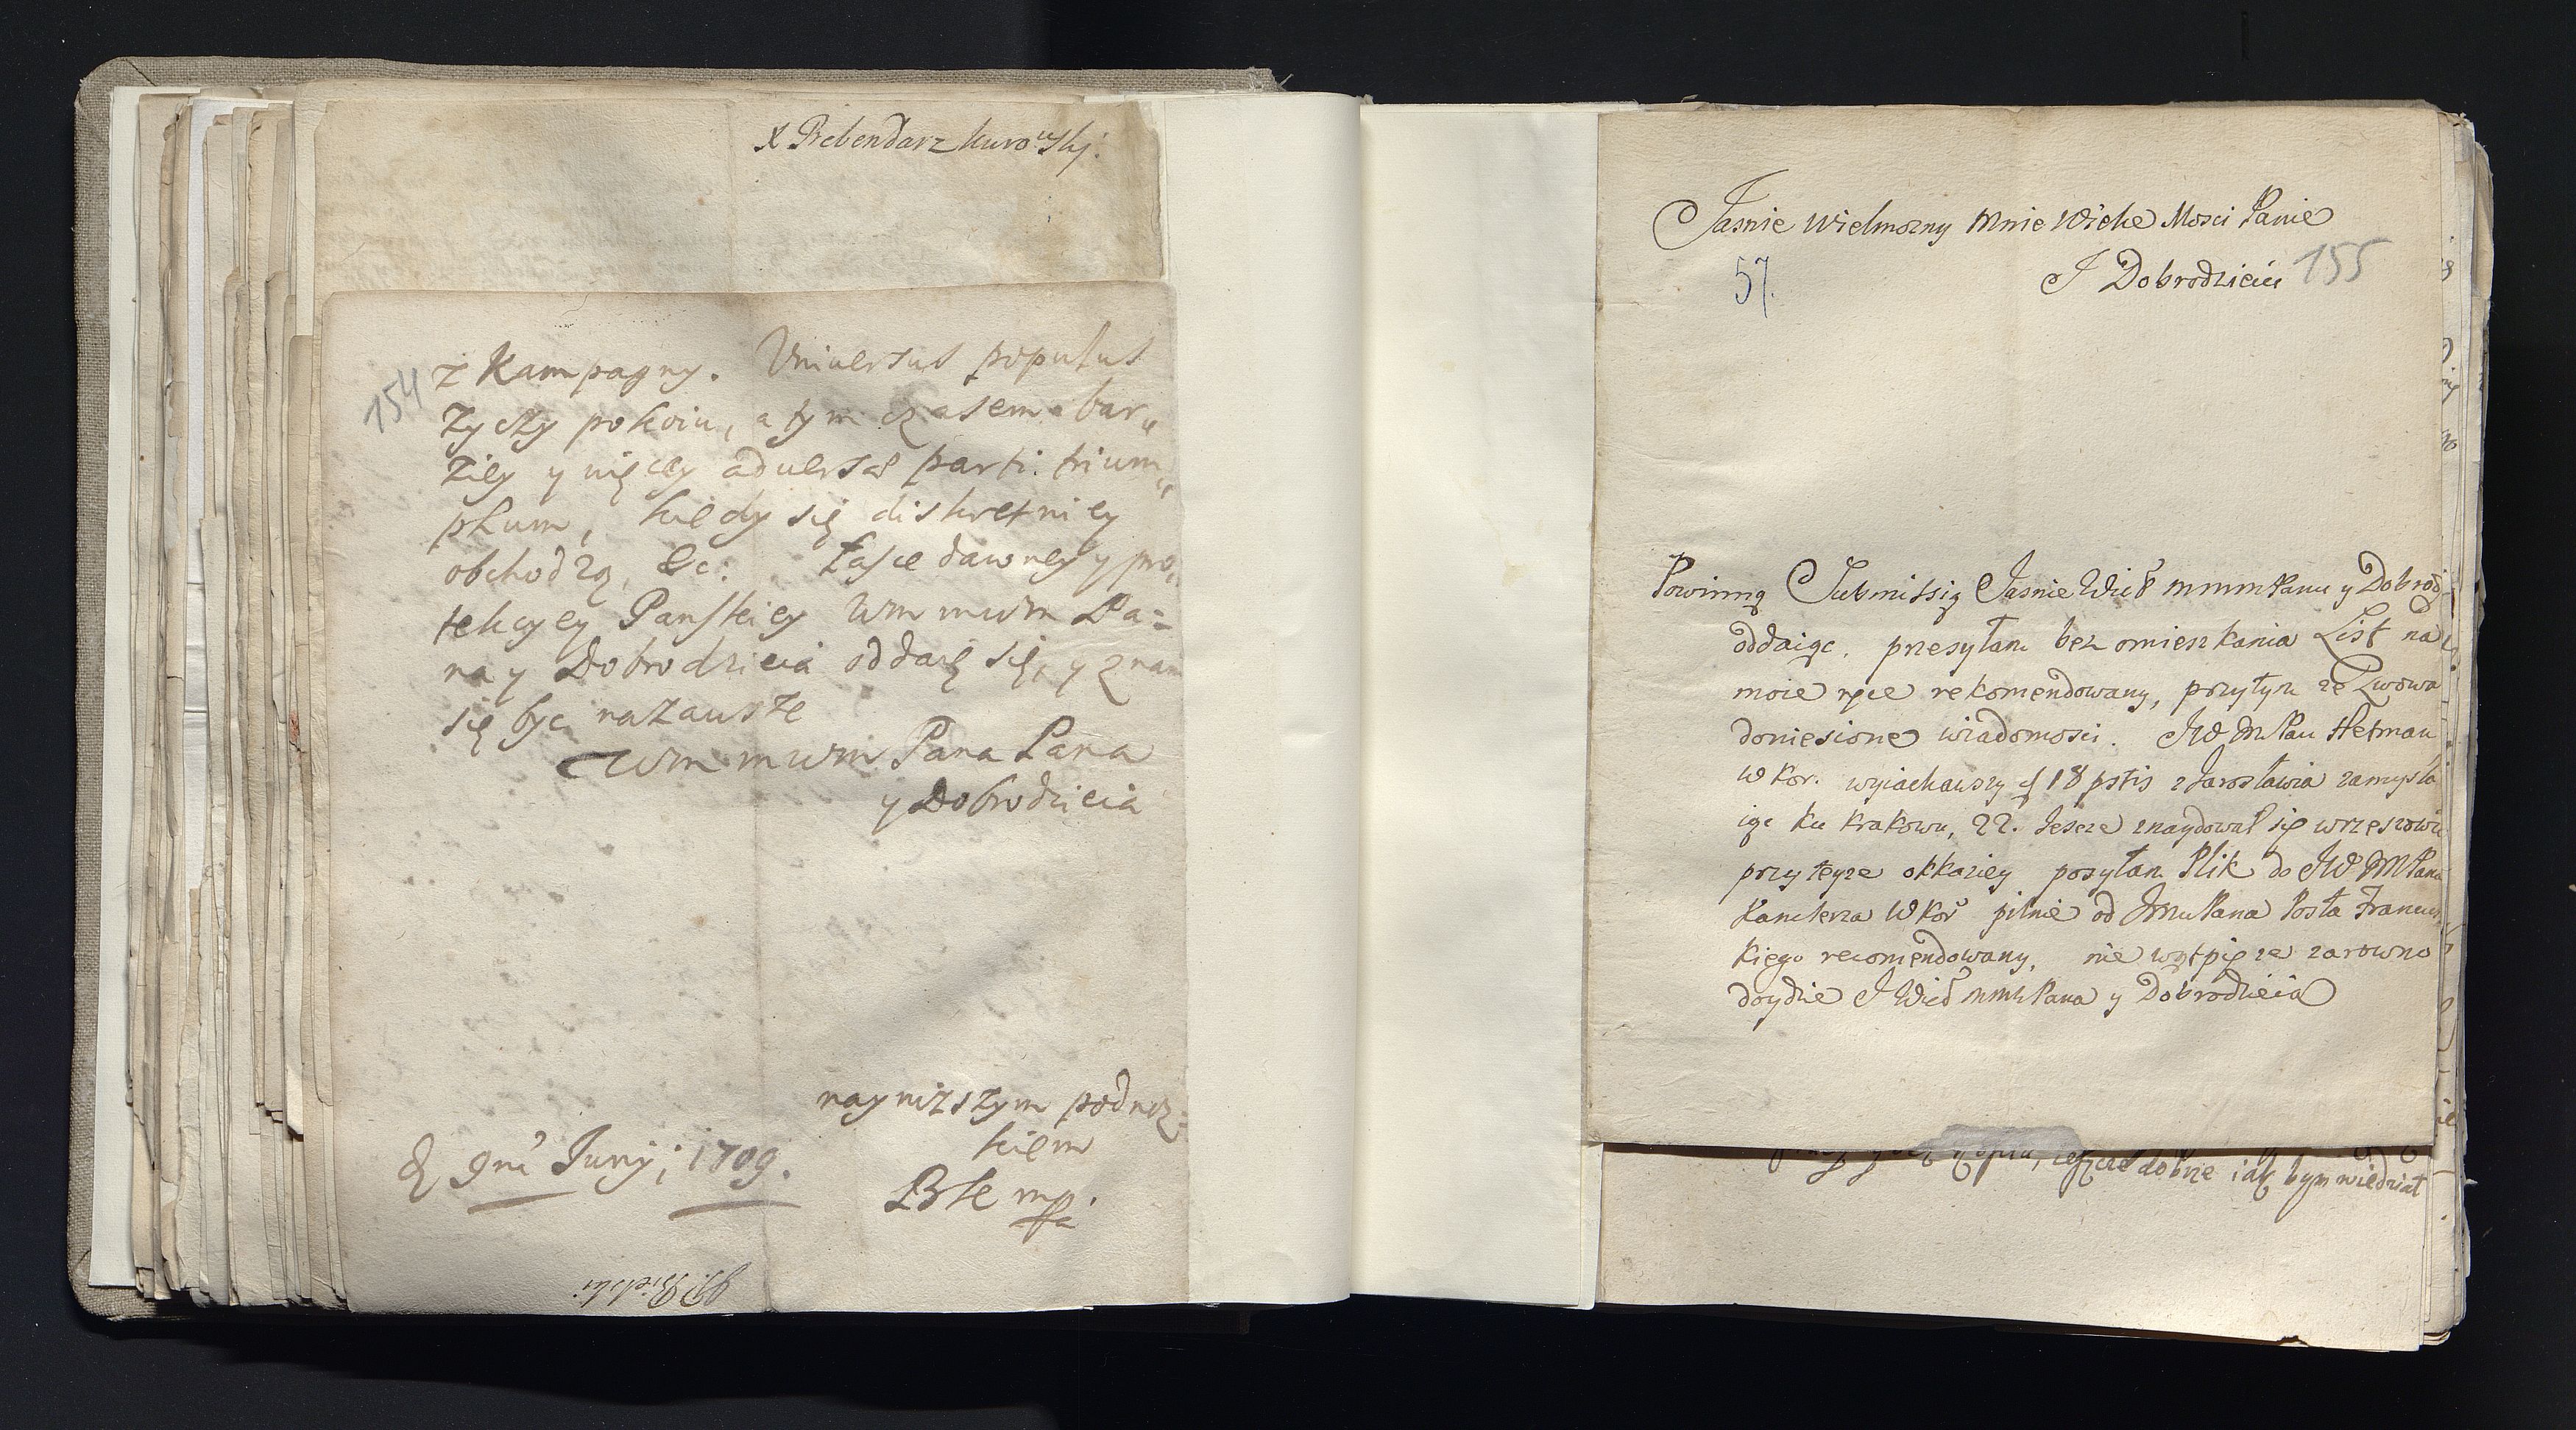 X Prebendarz Kurowskj.
154
z Kampagny. Uniuersus populus
zyczy pokoiu, a tym czasem bar„
ziey y więcey aduersae parti trium„
phum, kiedy się diskretniey
obchodzą, &c: Łasce dawney y pro„
tekcyey Panskiey Wm mwm Pa=
na y Dobrodzieia oddaię się, y znam
się byc nazawsze
Wm mwm Pana Pana
y Dobrodzieia
nayniższym podnoż=
kiem
d 9na Junij; 1709.
155
57.
Jasnie Wielmozny Mnie Wielce Mosci Panie
J Dobrodzieiu
Powinną Submissią Jasnie Wiel mmmPanu y Dobrod
oddaiąc, przesyłam bez omieszkania List na
moie ręce rekomendowany, przytym ze Lwowa
doniesione wiadomosci. JW MPan Hetman
W Kor. wyiachawszy d 18 pstis z Jarosławia zamysla
iąc ku Krakowu, 22. Jescze znaydował się w Rzeszowie
przy teyze okkaziey posyłam Plik do JW MPana
Kanclerza W Kor pilnie od JmuPana Posła Francus
kiego recomendowany, nie wątpię ze zarowno
doydzie J Wiel mmPana y Dobrodzieia
dobrze iak bym wiedział